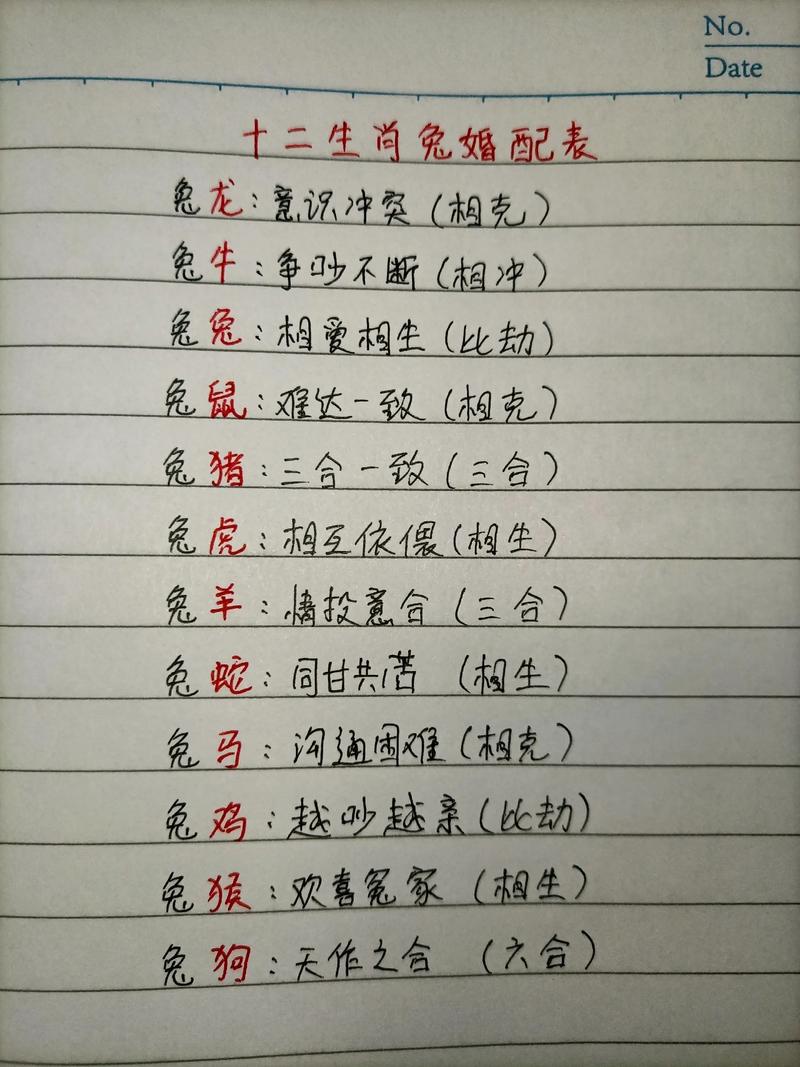 No.
Date
十二生肖兔婚配表
兔龙：意识冲突（相克）
兔牛：争吵不断（相冲）
兔兔：相爱相生（比劫）
兔鼠：难达一致（相克）
兔猪：三合一致（三合）
兔虎：相互依偎（相生）
兔羊：情投意合（三合）
兔蛇：同甘共苦（相生）
兔马：沟通困难（相克）
兔鸡：越吵越亲（比劫）
兔猴：欢喜冤家（相生）
兔狗：天作之合（六合）